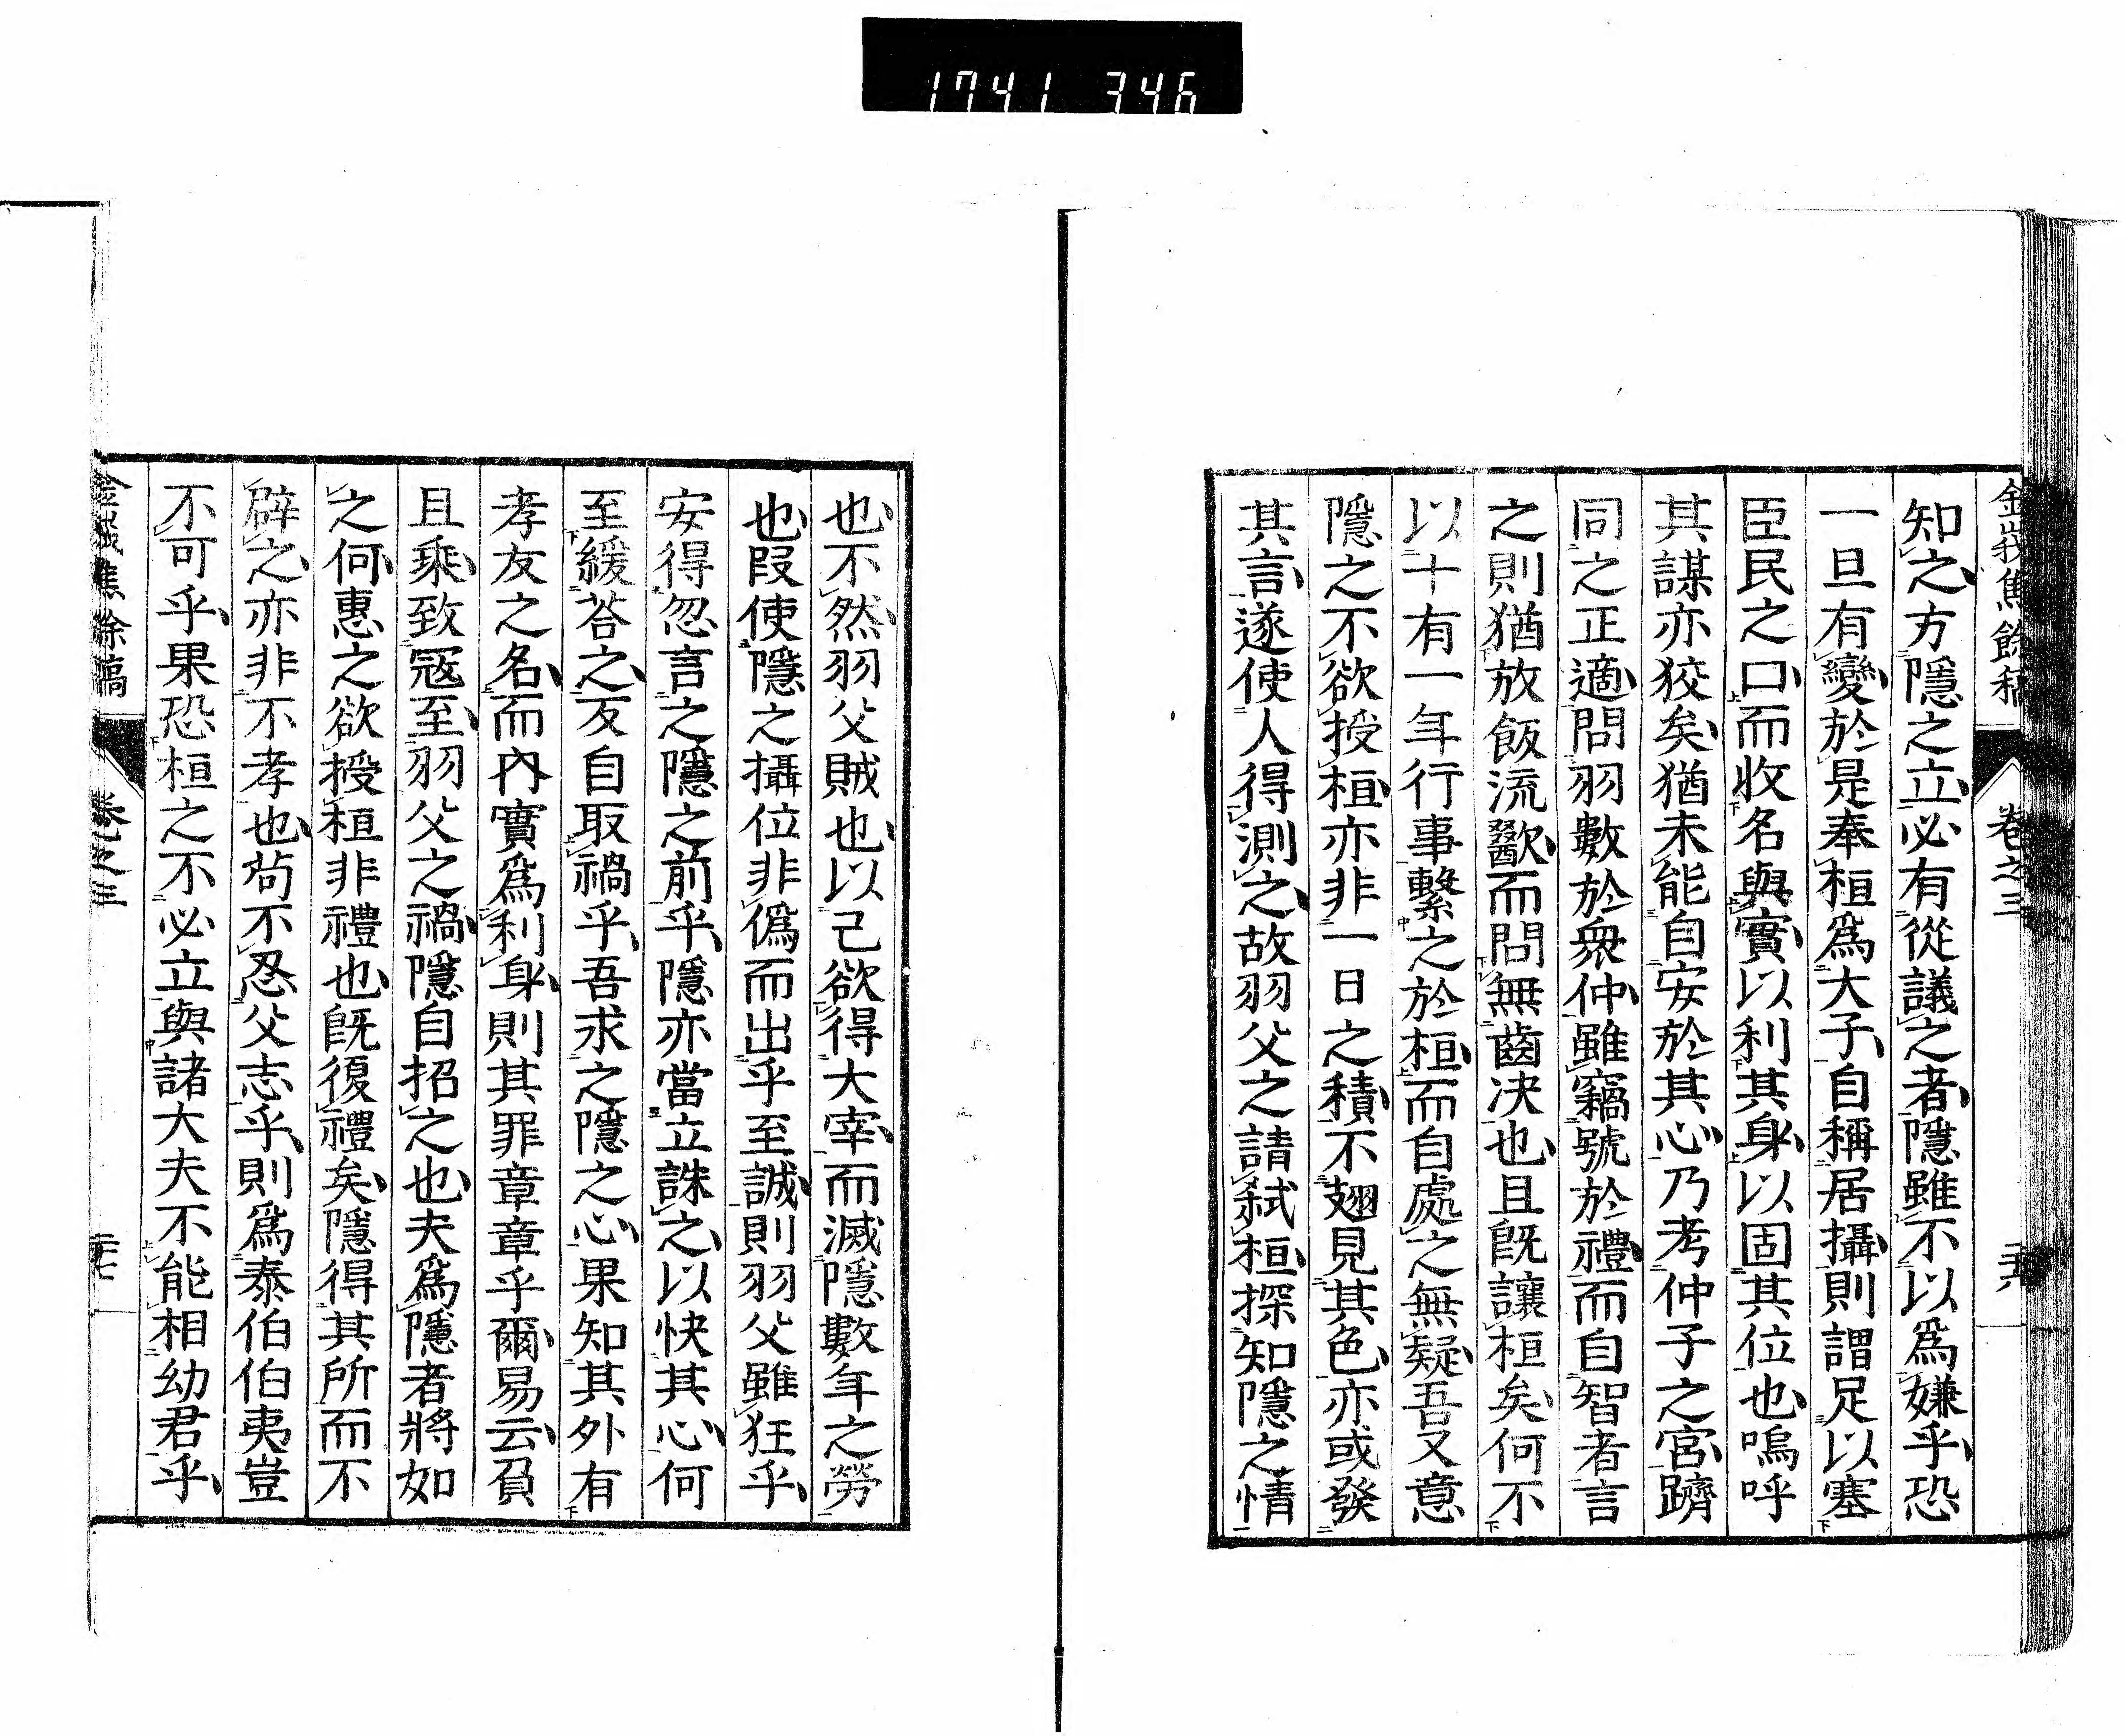 1741 346
金峩焦餘稿 卷之三 二十六
知之方隱之立必有從議之者隱雖不以爲嫌乎恐
一旦有變於是奉桓爲大子自稱居攝則謂足以塞
臣民之口而收名與實以利其身以固其位也嗚呼
其謀亦狡矣猶未能自安於其心乃考仲子之宮躋
同之正適問羽數於衆仲雖竊號於禮而自智者言
之則猶放飯流歠而問無齒决也且既讓桓矣何不
以十有一年行事繫之於桓而自處之無疑吾又意
隱之不欲授桓亦非一日之積不翅見其色亦或發
其言遂使人得測之故羽父之請弑桓探知隱之情
也不然羽父賊也以己欲得大宰而滅隱數年之勞
也叚使隱之攝位非僞而出乎至誠則羽父雖狂乎
安得忽言之隱之前乎隱亦當立誅之以快其心何
至緩荅之反自取禍乎吾求之隱之心果知其外有
孝友之名而內實爲利身則其罪章章乎爾易云負
且乘致冦至羽父之禍隱自招之也夫爲隱者將如
之何惠之欲授桓非禮也既復禮矣隱得其所而不
辟之亦非不孝也苟不忍父志乎則爲泰伯伯夷豈
不可乎果恐桓之不必立與諸大夫不能相幼君乎
金峩焦餘稿 卷之三 二十七